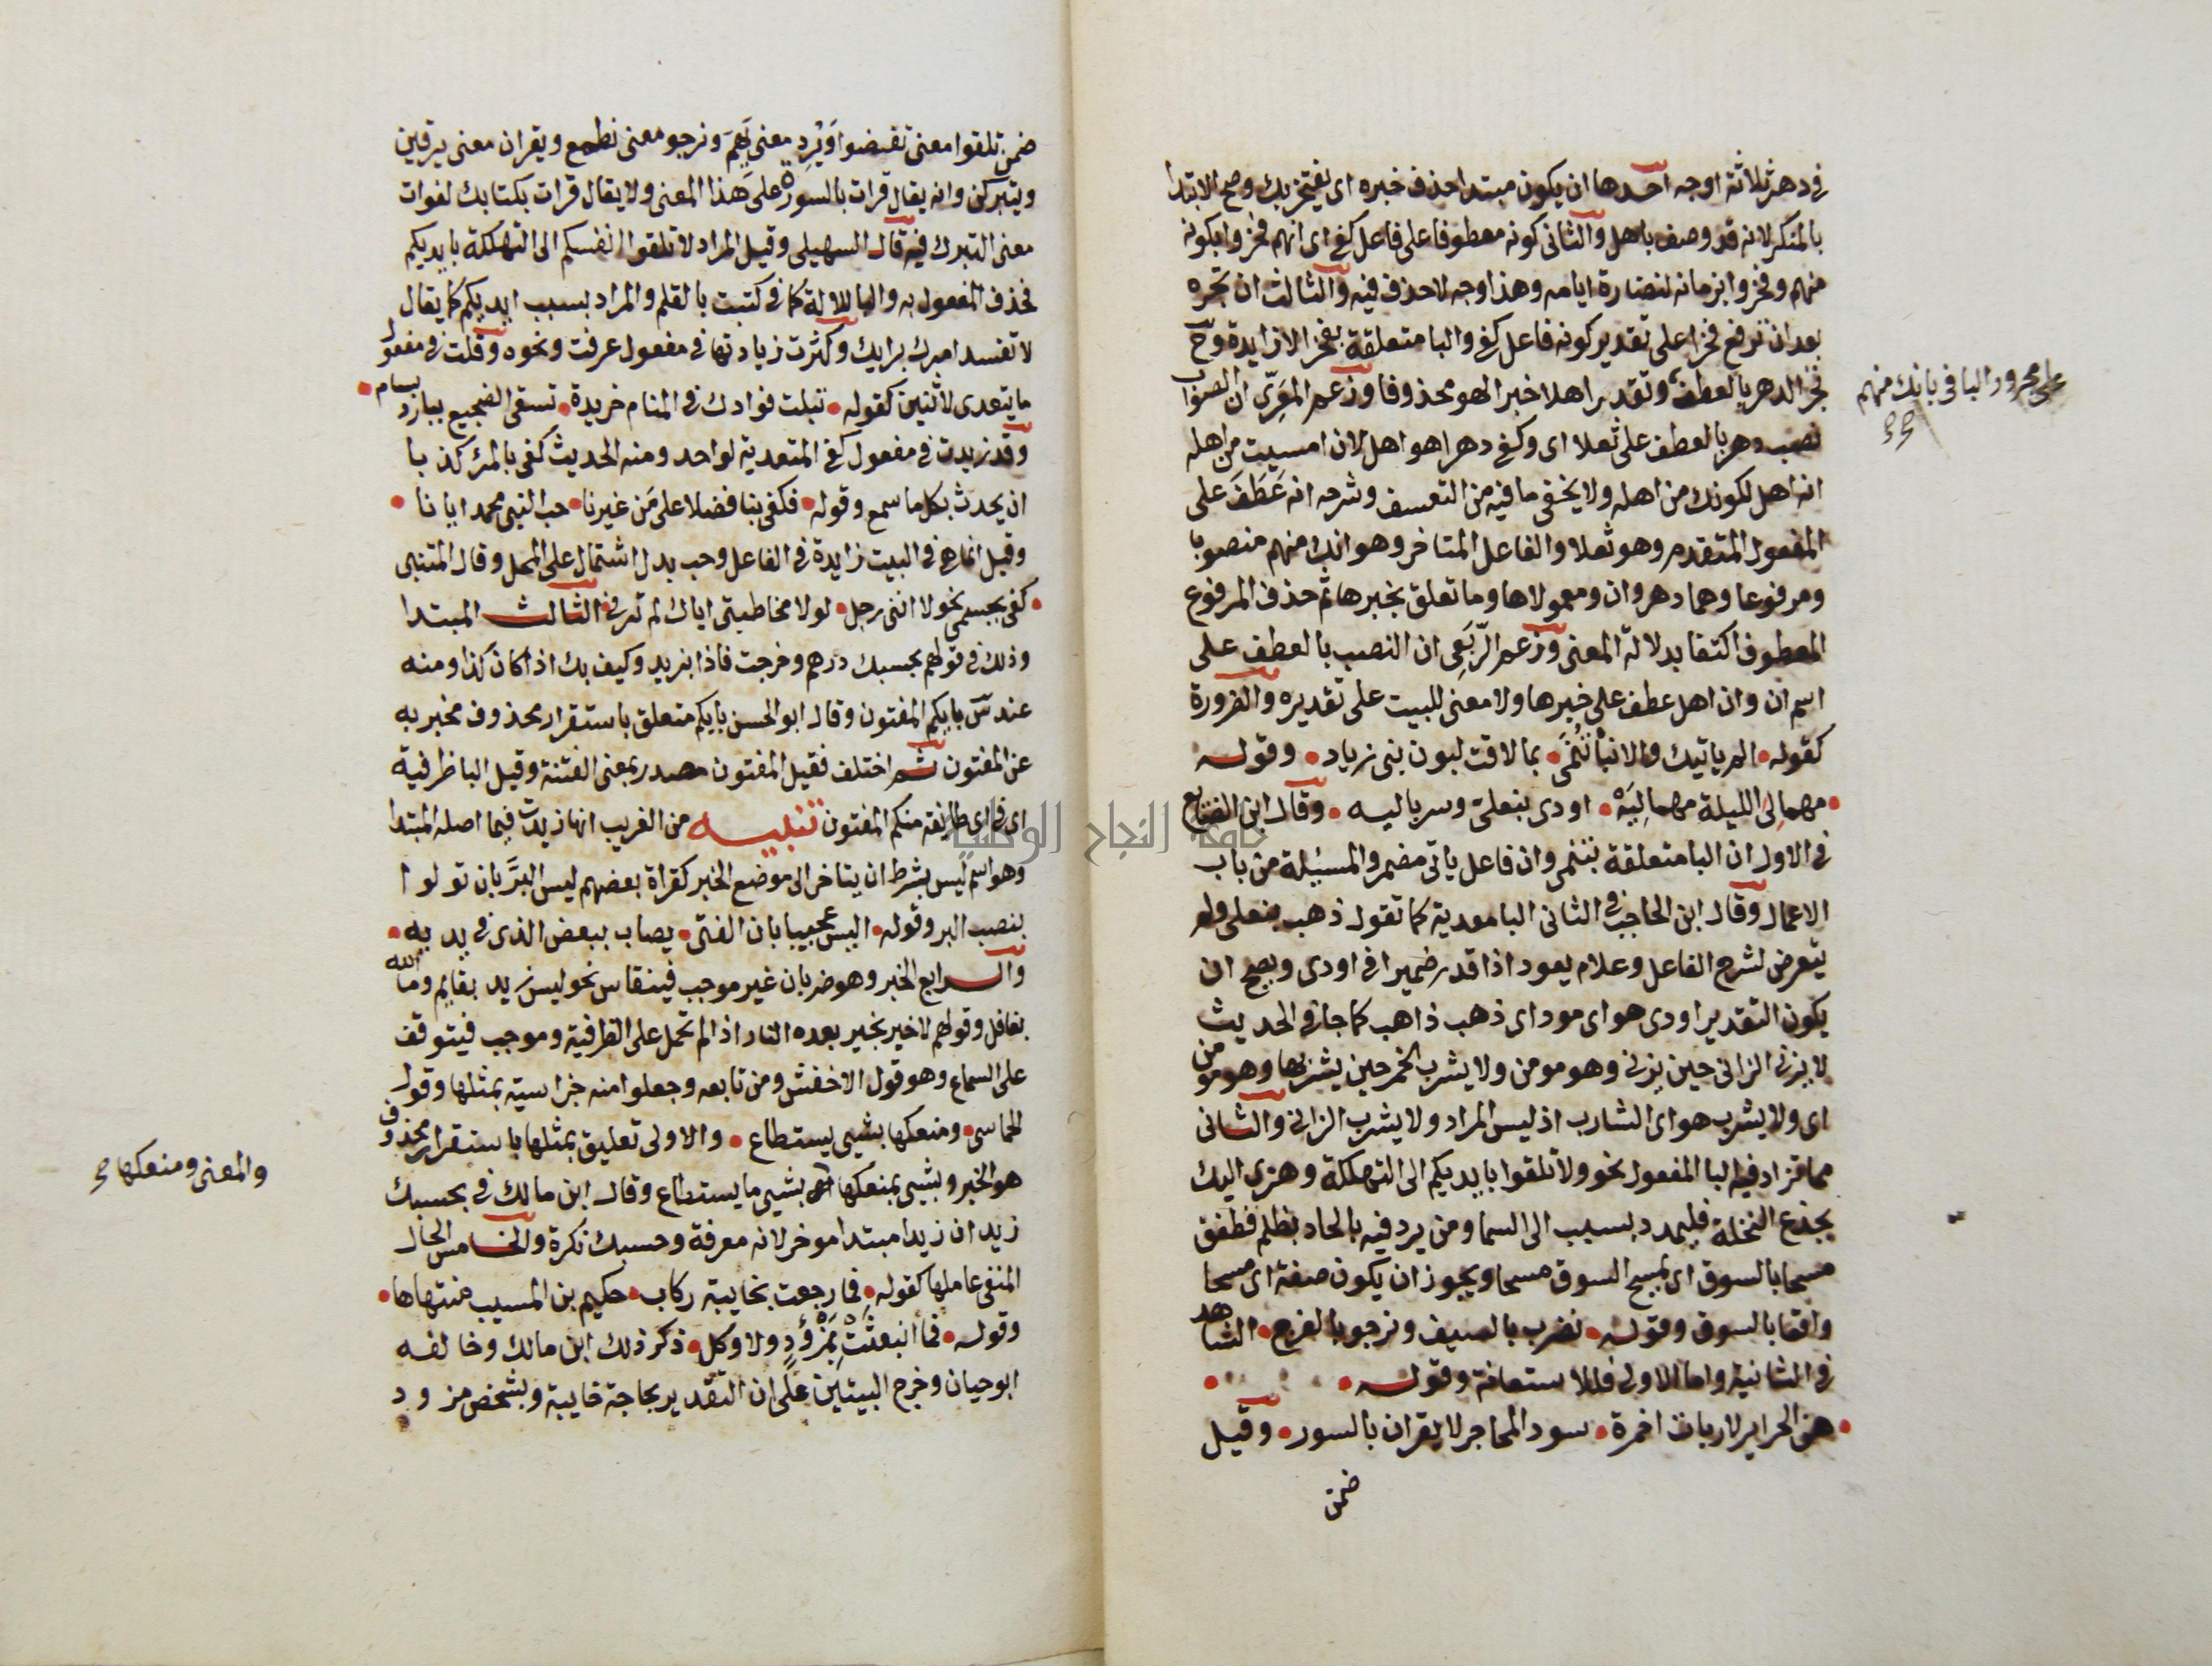 في دهر ثلاثة اوجه احدها ان يكون مبتدا حذف خبره اى يفتخر بك وصح الابتدا
بالمنكر لانه قد وصف باهل والثانى كونه معطوفا على فاعل كفى اى انهم فخروا بكونه
منهم وفخروا بزمانه لنضارة ايامه وهذا وجه لاحذف فيه والثالث ان تجره
بعد ان ترفع فخرا على تقدير كونه فاعل كفى والبا متعلقة بفخر لا زايدة وح
تجر الدهر بالعطف وتقدير اهلا خبرا لهو محذوفا وزعم المعرّى ان الصواب
على مجرور البا فى بانك منهم
نصب دهر بالعطف على ثعلا اى وكفى دهرا هو اهل لان امسيت من اهله
انه اهل لكونك من اهله ولا يخفى ما فيه من التعسف وشرحه انه عَطَفَ على
المفعول المتقدم وهو ثعلا والفاعل المتاخر وهو انك منهم منصوبا
ومرفوعا وهما دهر وان ومعمولاها وما تعلق بخبرها ثم حذف المرفوع
المعطوف اكتفا بدلالة المعنى وزعم الرّبَعِى ان النصب بالعطف على
اسم ان وان اهل عطف على خبرها ولا معنى للبيت على تقديره والضرورة
كقوله • الم ياتيك والانباُ تَنْمَى • بما لاقت لبون بنى زياد • وقوله
• مهما لِىَ الليلة مهما لِيَهْ • اودى بنعلىّ وسرباليه • وقال ابن الضايع
فى الاول ان البا متعلقة بتنمى وان فاعل ياتى مضمر والمسئلة من باب
الاعمال وقال ابن الحاجب فى الثانى البا معدية كما تقول ذهب بنعلى ولم
يتعرض لشرح الفاعل وعلام يعود اذا قدر ضميرا فى اودى ويصح ان
يكون التقدير اودى هو اى مود اى ذهب ذاهب كما جا فى الحديث
لا يزنى الزانى حين يزنى وهو مومن ولا يشرب الخمر حين يشربها وهو مومن
اى ولا يشرب هو اى الشارب اذ ليس المراد ولا يشرب الزانى والثانى
مما تزاد فيه البا المفعول نحو ولا تلقوا بايديكم الى التهلكة وهزى اليك
بجذع النخلة فليمدد بسبب الى السما ومن يرد فيه بالحاد بظلم فطفق
مسحا بالسوق اى يمسح السوق مسحا ويجوز ان يكون صفة اى مسحا
واقعا بالسوق وقوله • نضرب بالسيف ونرجو بالفرج • الشاهد
فى الثانية واما الاولى فللاستعانة وقوله •
• هن الحراير لا ربات اخمرة • سود المحاجر لا يقران بالسور • وقيل
ضمن
ضمن تلقوا معنى تفضوا وَيُرِد معنى يَهُمّ ونرجو معنى نطمع ويقران معنى يرقين
ويتبركن وانه يقال قرات بالسورة على هذا المعنى ولا يقال قرات بكتابك لفوات
معنى التبرك فيه قال السهيلى وقيل المراد لا تلقوا انفسكم الى التهلكة بايديكم
فحذف المفعول به والبا للالة كما فى كتبت بالقلم والمراد بسبب ايديكم كما يقال
لا تفسد امرك برايك وكثرت زيادتها فى مفعول عرفت ونحوه وقلت فى مفعول
ما يتعدى لاثنين كقوله • تبلت فوادك فى المنام خريدة • تسقى الضجيع ببارد بسام •
وقد زيدت فى مفعول كفى المتعدية لواحد ومنه الحديث كفى بالمرء كذبا
ان يحدث بكل ما سمع وقوله • فكفى بنا فضلا على مَن غيرنا • حب النبى محمد ايانا •
وقيل انما هى فى البيت زايدة فى الفاعل وحب بدل اشتمال على المحل وقال المتنبى
• كفى بجسمى نحولا اننى رجل • لولا مخاطبتى اياك لم ترنى • الثالث المبتدا
وذلك فى قولهم بحسبك درهم وخرجت فاذا بزيد وكيف بك اذا كان كذا ومنه
عند س بايكم المفتون وقال ابو الحسن بايكم متعلق باستقرار محذوف مخبر به
عن المفتون ثم اختلف فقيل المفتون مصدر بمعنى الفتنة وقيل البا ظرفية
اى فى اى طايفة منكم المفتون تنبيه من الغريب انها زيدت فيما اصله المبتدا
وهو اسم ليس بشرط ان يتاخر الى موضع الخبر كقراة بعضهم ليس البرَّ بان تولوا
بنصب البر وقوله • اليس عجيبا بان الفتى • يصاب ببعض الذى فى يديه •
والرابع الخبر وهو ضربان غير موجب فينقاس نحو ليس زيد بقايم وما الله
بغافل وقولهم لا خير بخير بعده النار اذا لم تحمل على الظرفية وموجب فيتوقف
على السماع وهو قول الاخفش ومن تابعه وجعلوا منه جزا سيئة بمثلها وقول
الحماسى • ومنعكها بشيى يستطاع • والاولى تعليق بمثلها باستقرار محذوف
هو الخبر وبشيى بمنعكها اى بشيى ما يستطاع وقال ابن مالك فى بحسبك
والمعنى ومنعكها
زيد ان زيدا مبتدا موخر لانه معرفة وحسبك نكرة والخامس الحال
المنفى عاملها كقوله • فما رجعت بخايبة ركاب • حكيم بن المسيب منتهاها •
وقوله • فما انبعثَتْ بمَزْؤُدٍ ولا وكل • ذكر ذلك ابن مالك وخالفه
ابو حيان وخرج البيتين على ان التقدير بحاجة خايبة وبشخص مزود
جامعة النجاح الوطنية